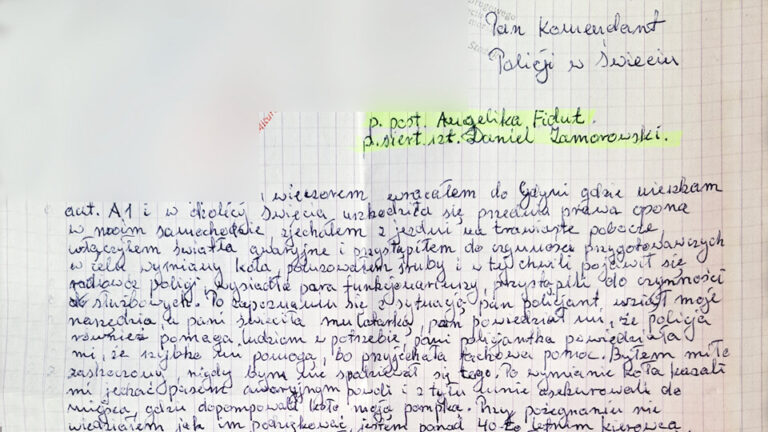 Pan Komendant
Policji w Świeciu
p. post. Angelika Fidut.
p. sierż. szt. Daniel Zamorowski.
i wieczorem wracałem do Gdyni gdzie mieszkam
aut. A1 i w okolicy Świecia uszkodziła się przednia prawa opona
w moim samochodzie zjechałem z jezdni na trawiaste pobocze
włączyłem światła awaryjne i przystąpiłem do czynności przygotowawczych
w celu wymiany koła poluzowałem śruby i w tej chwili pojawił się
radiowóz policji, wysiadła para funkcjonariuszy, przystąpili do czynności
służbowych. Po zapoznaniu się z sytuacją pan policjant wziął moje
narzędzia a pani świeciła mi latarką, pan powiedział mi, że policja
również pomaga ludziom w potrzebie, pani policjantka powiedziała
mi, że szybko mi pomogą, bo przyjechała fachowa pomoc. Byłem mile
zaskoczony nigdy bym nie spodziewał się tego. Po wymianie koła kazali
mi jechać pasem awaryjnym powoli i z tyłu mnie asekurowali do
miejsca, gdzie dopompowali koło moją pompką. Przy pożegnaniu nie
wiedziałem jak im podziękować, jestem ponad 40-to letnim kierowcą